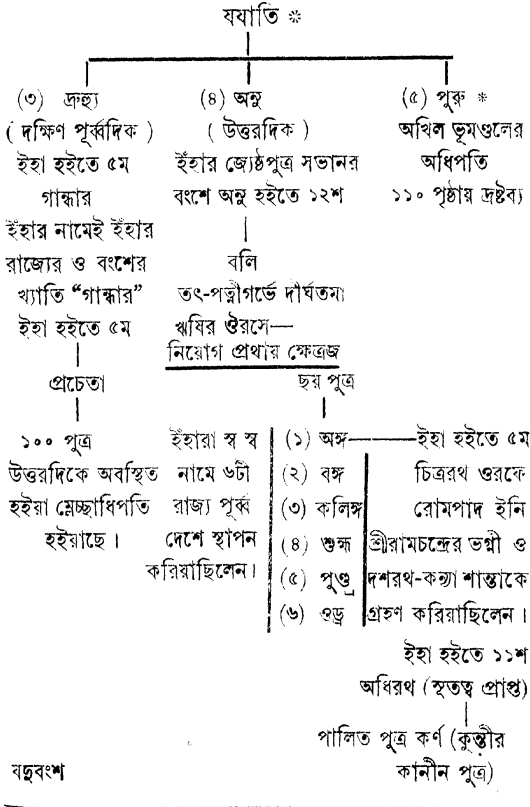 যযাতি *
(৩) দ্রুহ্যু
( দক্ষিণ পূর্ব্বদিক )
ইহা হইতে ৫ম
গান্ধার
ইঁহার নামেই ইঁহার
রাজ্যের ও বংশের
খ্যাতি “গান্ধার”
ইহা হইতে ৫ম
প্রচেতা
১০০ পুত্র
উত্তরদিকে অবস্থিত
হইয়া ম্লেচ্ছাধিপতি
হইয়াছে।
(৪) অনু
( উত্তরদিক )
ইঁহার জ্যেষ্ঠপুত্র সভানর
বংশে অনু হইতে ১২শ
বলি
তৎ-পত্নীগর্ভে দীর্ঘতমা
ঋষির ঔরসে—
নিয়োগ প্রথায় ক্ষেত্রজ
ছয় পুত্র
ইঁহারা স্ব স্ব
নামে ৬টী
রাজ্য পূর্ব্ব
দেশে স্থাপন
করিয়াছিলেন।
(১) অঙ্গ
(২) বঙ্গ
(৩) কলিঙ্গ
(৪) শুহ্ম
(৫) পুণ্ড্র
(৬) ওড্র
ইহা হইতে ৫ম
চিত্ররথ ওরফে
রোমপাদ ইনি
শ্রীরামচন্দ্রের ভগ্নী ও
দশরথ-কন্যা শান্তাকে
গ্রহণ করিয়াছিলেন।
ইহা হইতে ১১শ
অধিরথ (সূতত্ব প্রাপ্ত)
পালিত পুত্র কর্ণ (কুন্তীর
কানীন পুত্র)
(৫) পুরু *
অখিল ভূমণ্ডলের
অধিপতি
১১০ পৃষ্ঠায় দ্রষ্টব্য
যদুবংশ